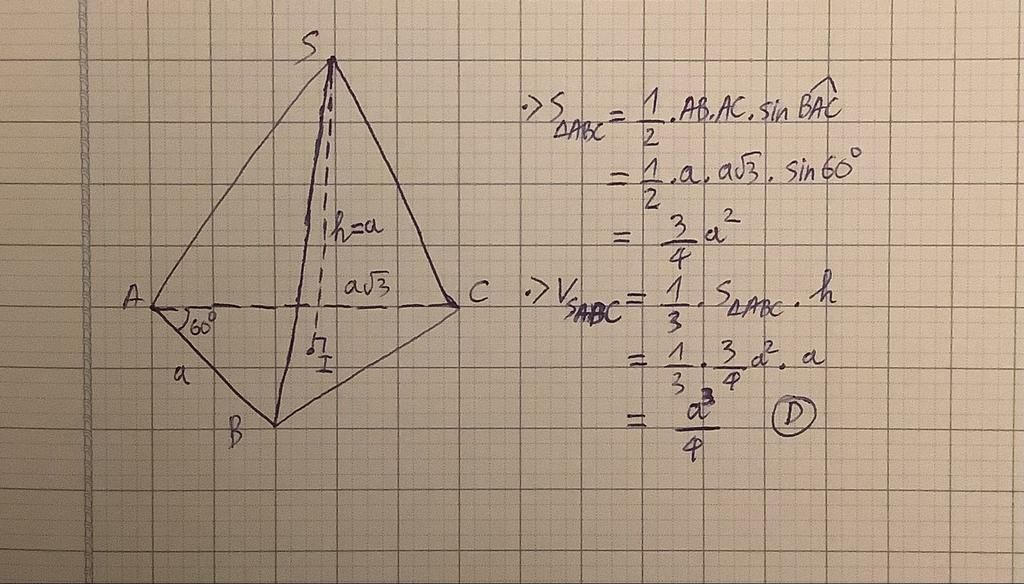 S
h=a
a√3
A
C
60°
I
a
B
·> S△ABC = 1/2 . AB.AC. sin BAC^
= 1/2 . a . a√3 . sin60°
= 3/4 a²
·> VSABC = 1/3 . S△ABC . h
= 1/3 . 3/4 a² . a
= a³/4 Ⓓ